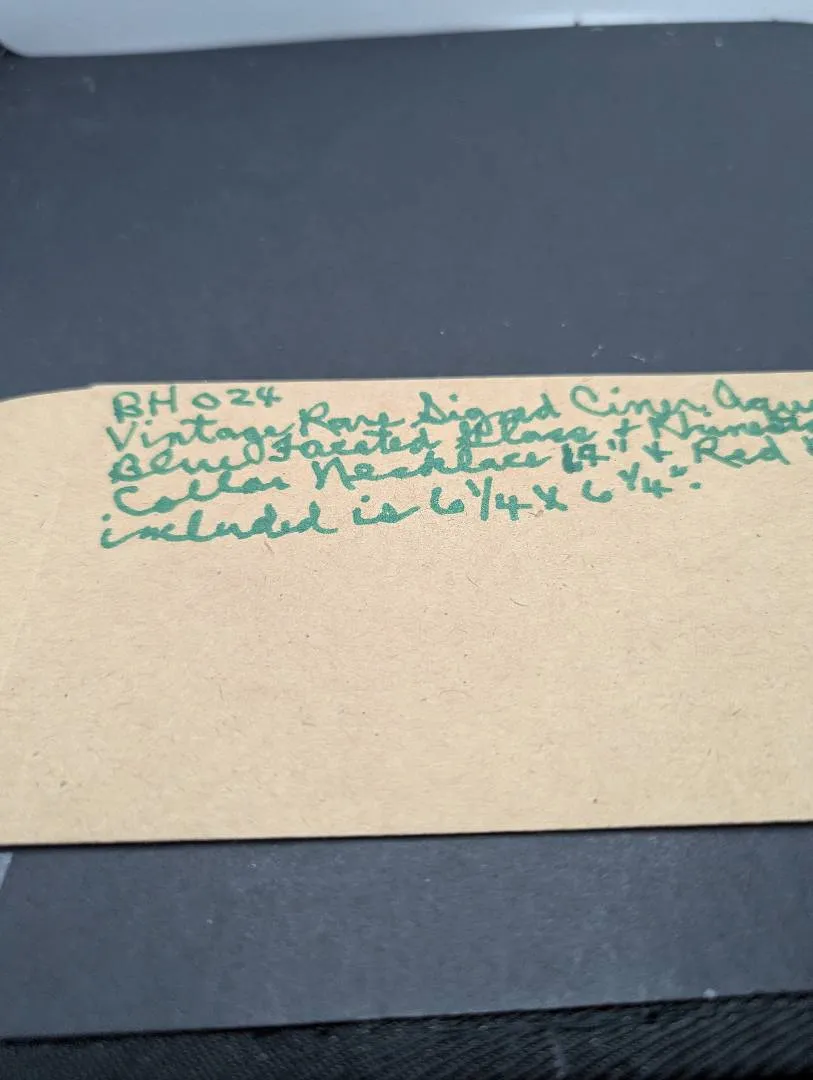 BH 024
Vintage Rare Signed Ciner Aqua
Blue Faceted Glass + Rhinesto
Collar Necklace " & Red
included is 6 1/4 X 6 1/4".